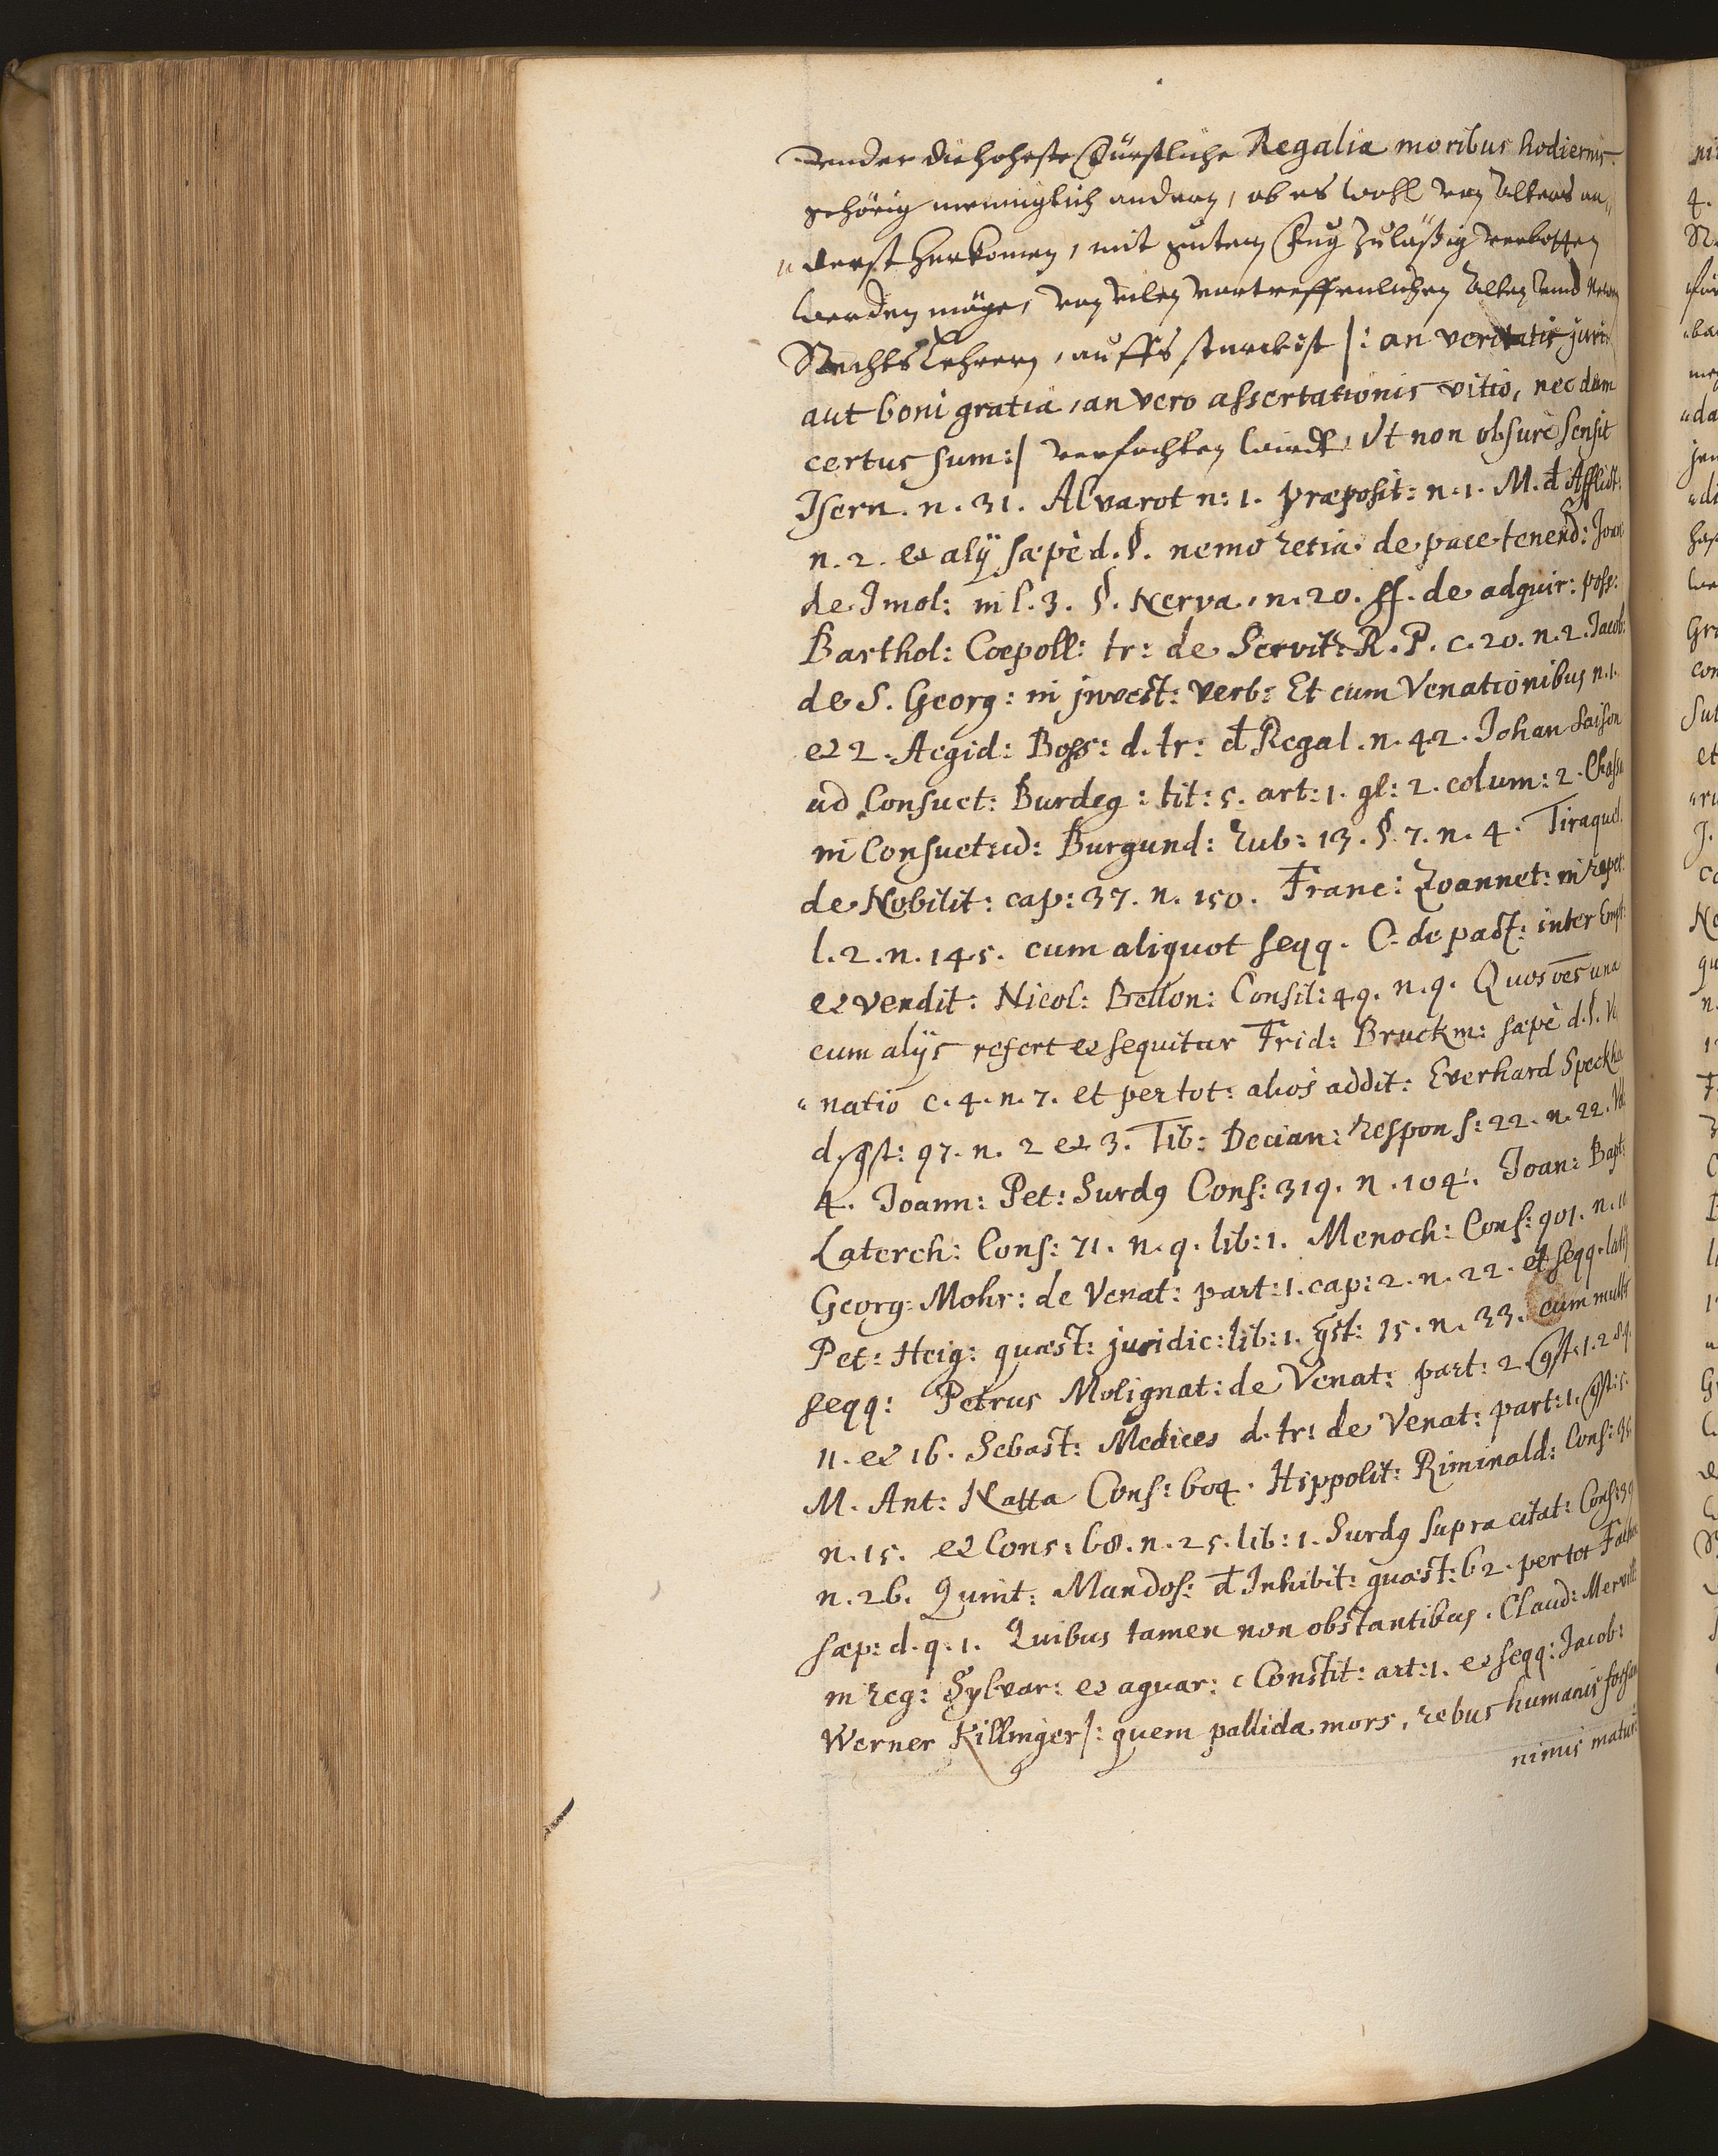 vnder die hoheste Fürstliche Regalia moribus hodiernis
gehörig menniglich andern, ob es wohl von Alters an,,
,,derst herkomen, mit gutem Fug zuläßig verbotten
werden möge, von vilen vortreffenlichen Alten vnd Newen
Rechts Lehrern, auffs starckist /: an veritatis juris
aut boni gratia, an vero assertationis vitio, nec dum
certus sum :/ verfochten wirdt, Vt non obscurè sensit
Isern. n. 31. Alvarot n: 1. præposit: n. 1. M. d Afflict:
n. 2. et alij sæpè d. §. nemo retia de pace tenend: Joan:
de Imol: in l. 3. §. Nerva. n. 20. ff. de adquir: poss:
Barthol: Coepoll: tr: de Servit: R. P. c. 20. n. 2. Jacob:
de S. Georg: in jnvest: verb: Et cum Venationibus n. 1.
et 2. Aegid: Boss: d. tr: d Regal. n. 42. Johan Faison
ad Consuet: Burdeg: tit: 5. art: 1. gl: 2. colum: 2. Chassa
in Consuetud: Burgund: Rub: 13. §. 7. n. 4. Tiraquel.
de Nobilit: cap: 37. n. 150. Franc: Zoannet: in repet:
l. 2. n. 145. cum aliquot seqq. C. de pact: inter Empt:
et vendit: Nicol: Bellon: Consil: 49. n. 9. Quos oēs una
cum alijs refert et sequitur Frid: Bruckm: sæpè d. §. Ve
,,natio c. 4. n. 7. et per tot: alios addit: Everhard Speckha
d. qst: 97. n. 2 et 3. Tib: Decian: respons: 22. n. 22. Vol
4. Joann: Pet: Surdg Cons: 319. n. 104. Joan: Bapt:
Laterch: Cons: 71. n. 9. lib: 1. Menoch: Cons: 901. n. 11
Georg: Mohr: de Venat: part: 1. cap: 2. n. 22. et seqq. latè
Pet: Heig: quæst: juridic: lib: 1. qst: 15. n. 33. cum multis
seqq: Petrus Molignat: de Venat: part: 2. qst: 1. 2 8 9.
11. et 16. Sebast: Medices d. tr: de Venat: part: 1. qst: 5.
M. Ant: Natta Cons: 604. Hippolit: Riminald: Cons: 35.
n. 15. et Cons: 68. n. 25. lib: 1. Surdg supra citat: Cons: 39
n. 26. Quint: Mandos: d Inhibit: quæst: 62. per tot Fachin
sæp: d. q. 1. Quibus tamen non obstantibus. Claud: Mervill:
in reg: Sylvar: et aquar: Constit: art: 1. et seqq: Jacob:
Werner Killinger /: quem pallida mors, rebus humanis forsan
nimis maturè